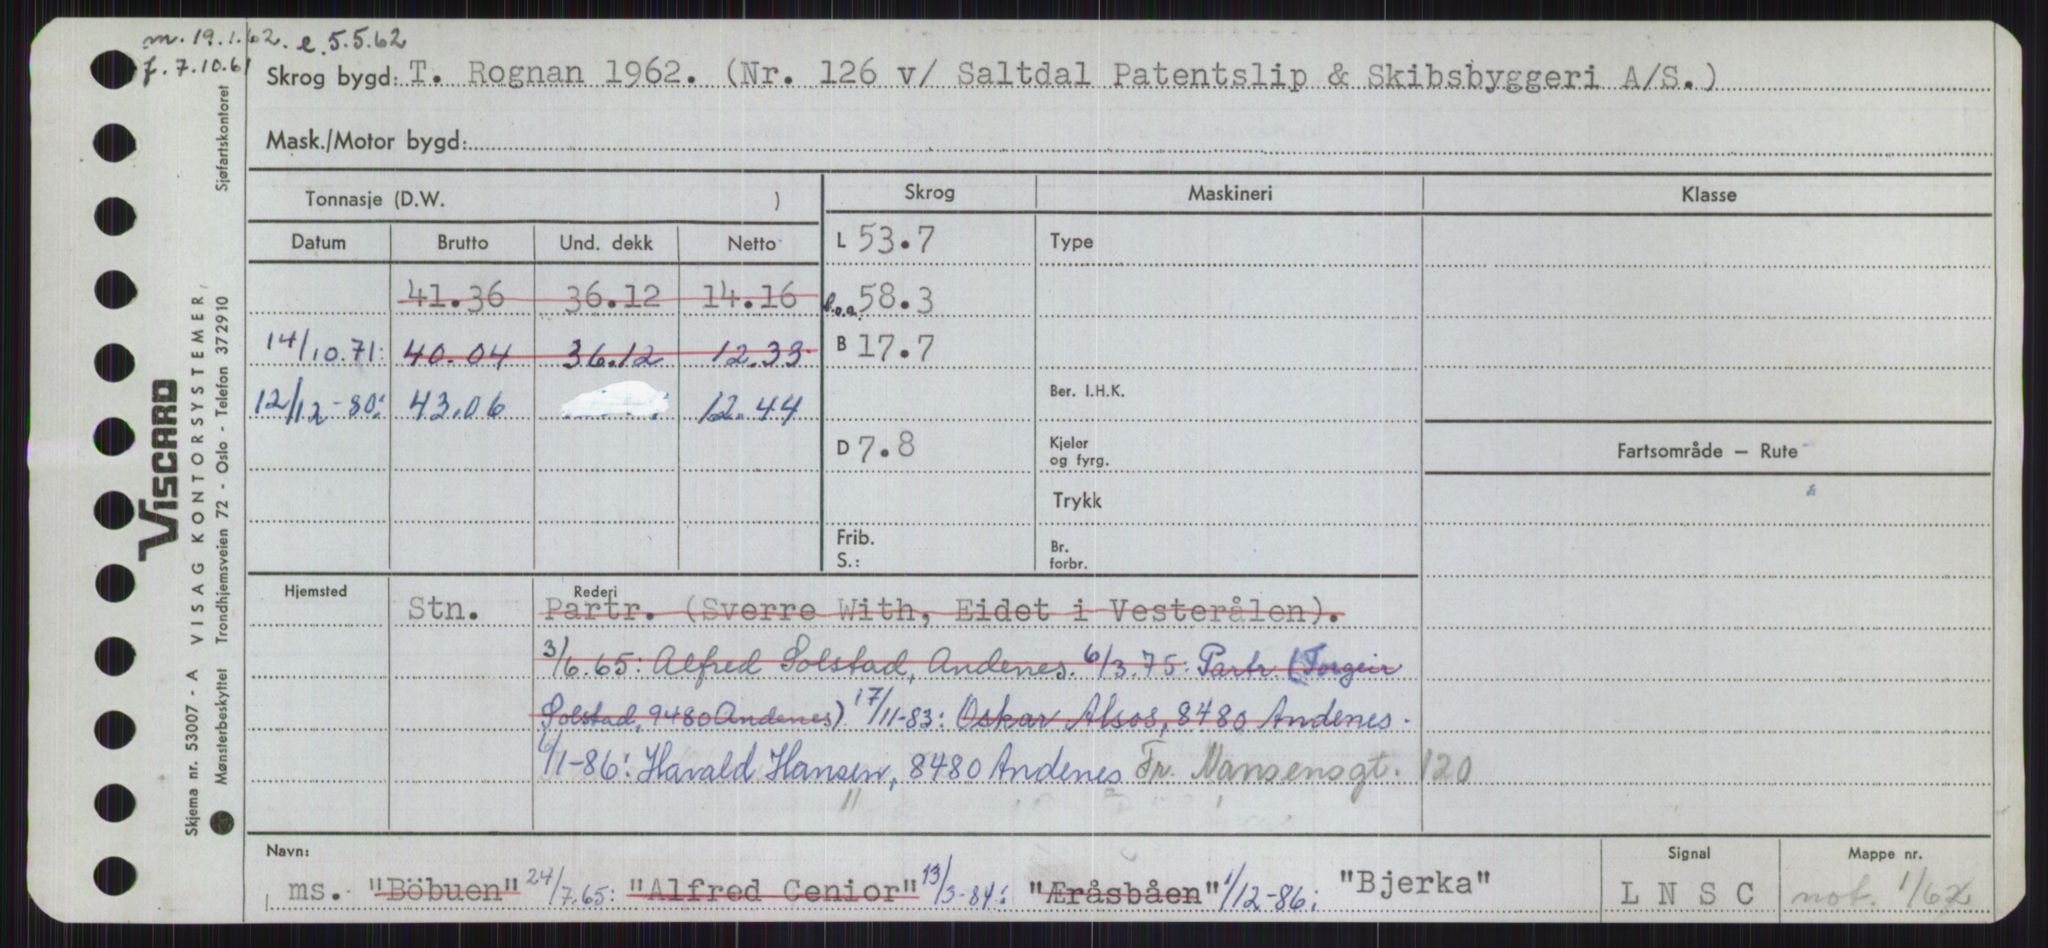 m. 19.1.62. e. 5.5.62
f. 7.10.61
Skrog bygd: T. Rognan 1962. (Nr. 126 v/ Saltdal Patentslip & Skibsbyggeri A/S.)
Mask./Motor bygd:
Tonnasje (D.W. )
Skrog Maskineri Klasse
Datum Brutto Und. dekk Netto
L 53.7 Type
41.36 36.12 14.16
l.o.a. 58.3
14/10.71: 40.04 36.12 12.33
B 17.7
12/12-80: 43.06 12.44
Ber. I.H.K.
D 7.8
Kjeler
og fyrg.
Fartsområde — Rute
Trykk
Frib.
S.:
Br.
forbr.
Hjemsted Rederi
Stn. Partr. (Sverre With, Eidet i Vesterålen).
3/6.65: Alfred Solstad, Andenes. 6/3.75: Partr (Torgeir
Solstad, 9480 Andenes) 17/11-83: Oskar Alsos, 8480 Andenes.
6/1-86: Harald Hansen, 8480 Andenes Fr. Nansensgt. 120
Navn: Signal Mappe nr.
ms. "Böbuen" 24/7.65: "Alfred Cenior" 13/3-84: "Æråsbåen" 1/12-86: "Bjerka" L N S C not. 1/62
VISCARD
Skjema nr. 53007 - A VISAG KONTORSYSTEMER,
Mønsterbeskyttet Trondhjemsveien 72 - Oslo - Telefon 372910 Sjøfartskontoret